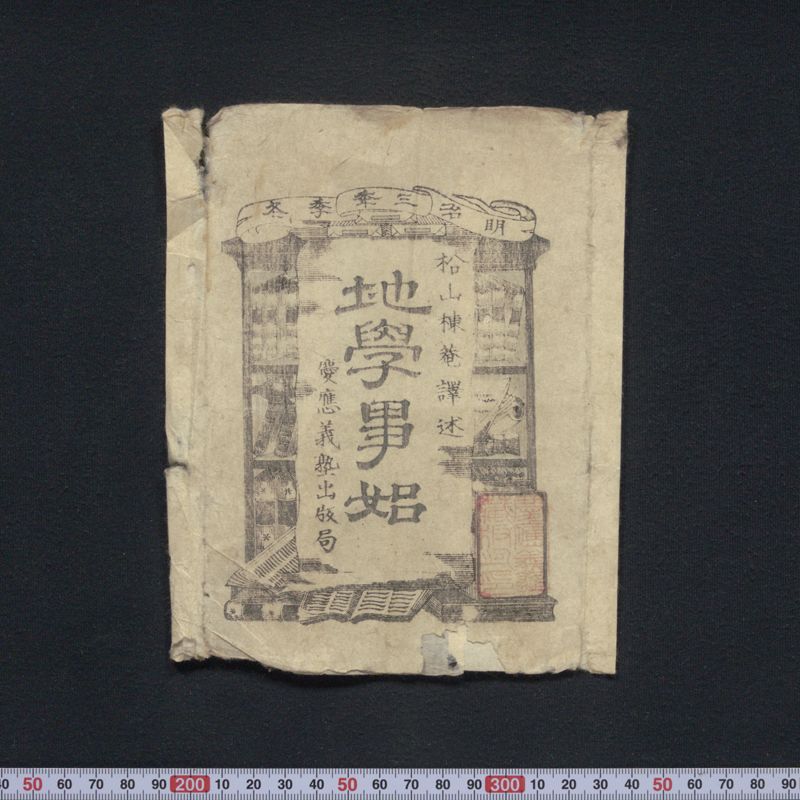 明治三年季冬
松山棟菴譯述
地學事始
慶應義塾出版局
50 60 70 80 90 200 10 20 30 40 50 60 70 80 90 300 10 20 30 40 50 60 70 80 90